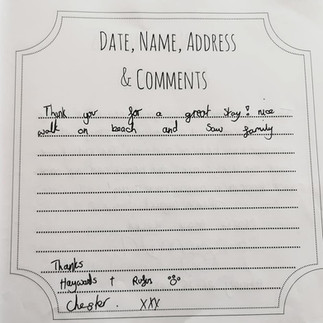 DATE, NAME, ADDRESS
& COMMENTS
Thank you for a great stay! nice
walk on beach and saw family
Thanks
Haywards +
Chester. xxx